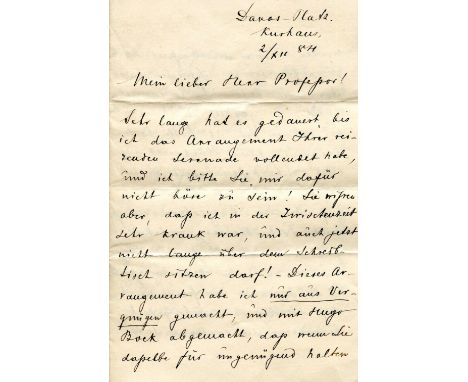 Davos-Platz.
Kurhaus,
2/XII 84
Mein lieber Herr Professor!
Sehr lange hat es gedauert bis
ich das Arrangement Ihrer rei-
zenden Serenade vollendet habe,
und ich bitte Sie, mir dafür
nicht böse zu sein! Sie wissen
aber, daß ich in der Zwischenzeit
sehr krank war, und auch jetzt
nicht lange über dem Schreib-
tisch sitzen darf! – Dieses Ar-
rangement habe ich nur aus Ver-
gnügen gemacht, und mit Hugo
Bock abgemacht, daß wenn Sie
dasselbe für ungenügend halten